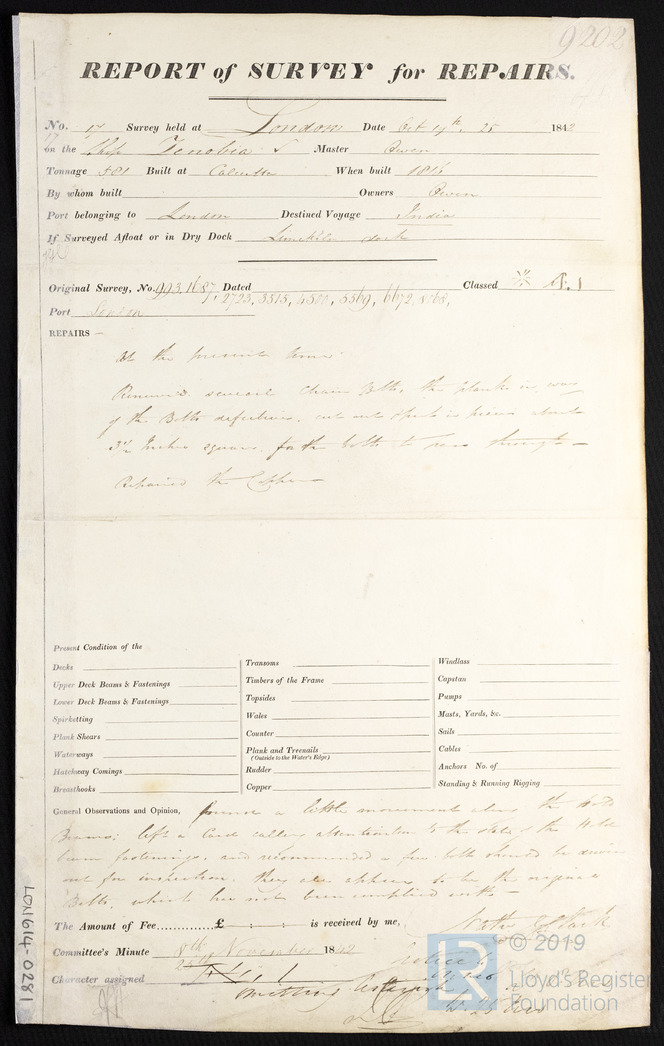 9202
REPORT of SURVEY for REPAIRS.
No. 17 Survey held at London Date Oct 19th, 25 1842
on the Ship Zenobia Master Owen
Tonnage 581 Built at Calcutta When built 1816
By whom built Owners Owen
Port belonging to London Destined Voyage India
If Surveyed Afloat or in Dry Dock dock
Original Survey, No. 993, 1687, Dated Classed A.1
2723, 3515, 4500, 5569, 6672, 8068,
Port London
REPAIRS —
At the present time.
Renewed several Chain Bolts, the planks in way
of the Bolts defective, cut out in about
3½ Inches square, for the bolts to pass through —
Repaired the —
Present Condition of the
Decks
Upper Deck Beams & Fastenings
Lower Deck Beams & Fastenings
Spirketting
Plank Shears
Waterways
Hatchway Comings
Breasthooks
Transoms
Timbers of the Frame
Topsides
Wales
Counter
Plank and Treenails
(Outside to the Water's Edge)
Rudder
Copper
Windlass
Capstan
Pumps
Masts, Yards, &c.
Sails
Cables
Anchors No. of
Standing & Running Rigging
General Observations and Opinion, a little movement the Hold
Beams; left a Card calling attention to the state of the Hold
beam fastenings, and recommended a few bolts should be driven
out for inspection, they also appear to be the original
Bolts, which has not been complied with —
The Amount of Fee £ is received by me,
Committee's Minute 8th November 1842
25th
Character assigned
LON614-0281
LR
© 2019
Lloyd's Register
Foundation